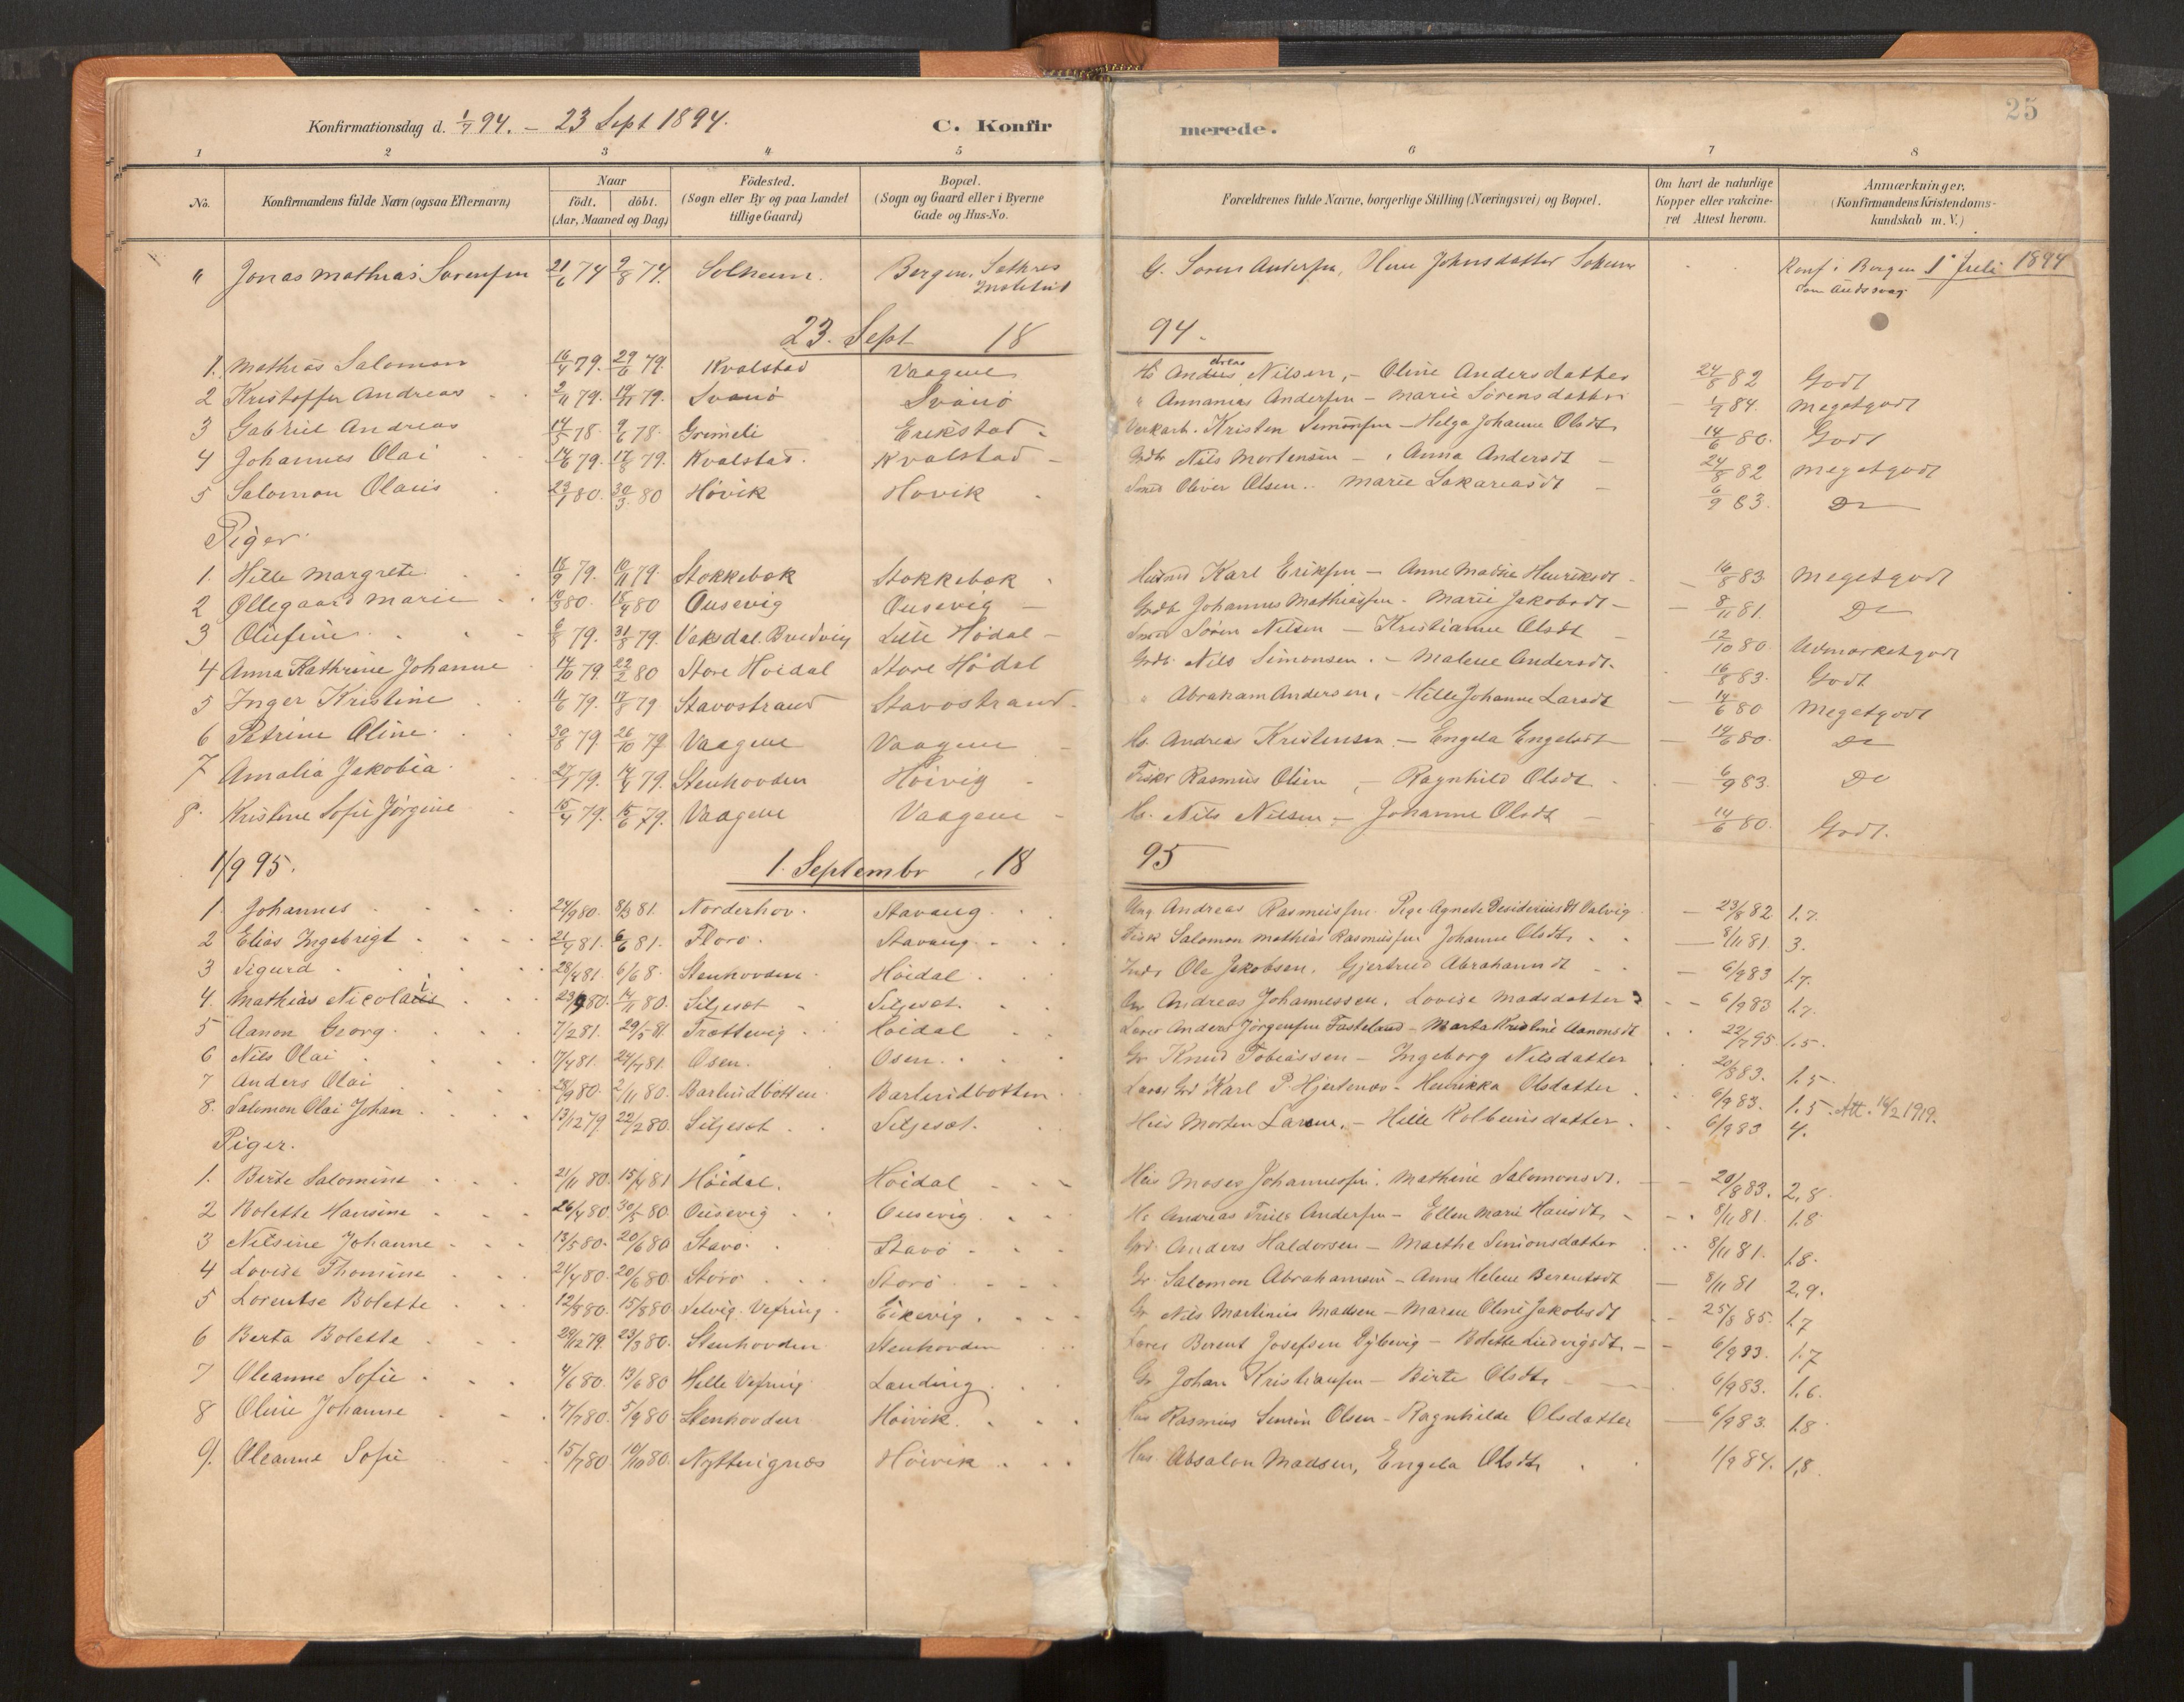 25
Konfirmationsdag d. 1/7 94. – 23 Sept 1894. C. Konfirmerede.
1 2 3 4 5 6 7 8
No. Konfirmandens fulde Navn (ogsaa Efternavn) Naar födt. döbt. (Aar, Maaned og Dag) Födested. (Sogn eller By og paa Landet tillige Gaard) Bopæl. (Sogn og Gaard eller i Byerne Gade og Hus-No. Forældrenes fulde Navne, borgerlige Stilling (Næringsvei) og Bopæl. Om havt de naturlige Kopper eller vakcineret Attest herom. Anmærkninger. (Konfirmandens Kristendomskundskab m. V.)
" Jonas Mathias Sørensen 21/6 74 9/8 74. Solheim. Bergen, Sathres Institut G. Søren Andersen, Johnsdatter Konf. i Bergen 1 Juli 1894 som Andssvag
23. Sept 1894.
1. Mathias Salomon 16/4 79. 29/6 79. Kvalstad Vaagene Hs Anders dreas Nilsen, – Oline Andersdatter 24/8 82 Godt
2 Kristoffer Andreas 2/11 79. 19/11 79. Svanø Svanø " Annanias Andersen – Marie Sørensdatter 1/9 84. Megetgodt
3 Gabriel Andreas 14/5 78. 9/6 78. Grimeli Erikstad Verkarb. Kristen Simonsen – Helga Johanne Olsdtr 14/6 80. Godt
4 Johannes Olai 14/6 79. 17/8 79. Kvalstad. Kvalstad – Grdbr Nils Mortensen – Anna Andersdt 24/8 82 Megetgodt
5 Salomon Olaus 23/1 80. 30/3 80 Høvik Hovik Smed Oliver Olsen. Marie Sakariasdt 6/9 83. Do
Piger.
1. Hille Margrete 18/9 79. 16/11 79. Stokkebøk Stokkebøk Husmd Karl Eriksen – Anne Malene Henriksdt 16/8 83 Megetgodt
2 Øllegaard Marie 10/3 80. 18/4 80 Ousevig Ousevig – Grdb Johannes Mathiassen – Marie Jakobsdt – 8/11 81. Do
3 Olufine 6/8 79. 31/8 79. Vaksdal Bredvig Lille Hödal – Søren Nilsen – Kristianne Olsdt 12/10 80. Udmærketgodt
4 Anna Kathrine Johanne 14/10 79. 22/2 80 Store Hoidal Store Hödal Grdb. Nils Simonsen. – Malene Andersdt. 16/8 83. Godt
5 Inger Kristine 11/6 79. 17/8 79 Stavostrand Stavostrand " Abraham Andersen, – Hille Johanne Larsdt 14/6 80 Megetgodt
6 Petrine Oline. 30/8 79. 26/10 79 Vaagene Vaagene – Hs. Andreas Kristensen – Engela Engelsdt – 14/6 80. Do
7 Amalia Jakobia 27/1 79. 14/4 79. Stenhovden Høivig Fisker Rasmus Olsen – Ragnhild Olsdt. 6/9 83. Do
8. Kristine Sofie Jørgine 15/4 79. 15/6 79. Vaagene Vaagene – Hs. Nils Nilsen – Johanne Olsdt – 14/6 80. Godt.
1/9 95. 1. Septembr 1895
1. Johannes 24/9 80. 8/3 81. Norderhov. Stavang Ung. Andreas Rasmussen. Pige Agnete Desideriusdt Valvig – 23/8 82 1.7.
2 Elias Ingebrigt 21/4 81. 6/6 81. Floro. Stavang Fisk Salomon Mathias Rasmussen Johanne Olsdtr 8/11 81. 3.
3 Sigurd 28/4 81. 6/6 8. Stenhovden. Höidal Inds Ole Jakobsen. Gjertrud Abrahamsdt – 6/9 83 1.7.
4. Mathias Nicolai 23/9 80. 14/11 80. Siljesøt Siljesøt. Gr Andreas Johannessen. Lovise Madsdatter 6/9 83 1.7.
5 Aanon Georg. 7/2 81. 29/5 81 Trættevig Høidal Lærer Anders Jørgensen Fasteland – Marta Kristine Aanonsdt 22/7 95. 1.5.
6 Nils Olai 7/4 81. 24/4 81. Osen. Osen. Gr Knud Tobiassen – Ingeborg Nilsdatter 20/8 83. 1.5.
7 Anders Olai 28/9 80. 2/11 80. Barlindbotten Barlindbotten Karl P. Hjertenes – Henrikka Olsdatter 6/9 83. 1.5. Att. 14/2 1919.
8. Salomon Olai Johan 13/12 79. 22/2 80. Siljesøt Siljesøt. Hus Morten Larsen. – Hille Kolbeinsdatter 6/9 83 4.
Piger.
1. Birte Salomine 21/11 80. 15/4 81 Höidal. Höidal Hus Moses Johannessen. Mathine Salomonsdt. 20/8 83. 2,8.
2 Bolette Hansine 26/4 80. 30/5 80 Ousevig Ousevig Hs Andreas Andersen – Ellen Marie Hansdtr – 8/11 81. 1.8
3 Nilsine Johanne 13/5 80. 20/6 80 Stavø. Stavø Grd. Anders Haldorsen – Marthe Simonsdatter 8/11 81. 1.8.
4 Lovise Thomine 21/4 80. 20/6 80 Storø Storø Gr Salomon Abrahamsen – Anne Helene Berentsdt – 8/11 81 2,9.
5 Lorentse Bolette 12/8 80. 15/8 80 Selvig. Vefring Eikevig. Gr Nils Martinius Madsen – Maren Oline Jakobsdt 25/8 85. 1.7
6 Berta Bolette 29/12 79. 23/3 80. Stenhovden Stenhovden Lærer Berent Josefsen – Bolette Ludvigsdtr – 6/9 83. 1.7
7 Oleanne Sofie 4/6 80. 13/6 80 Helle Vefring Landøig Gr Johan Kristiansen – Birte Olsdtr 6/9 83. 1.6.
8 Oline Johanne 7/7 80. 5/9 80 Stenhovden Høivik. Hus Rasmus Olsen – Ragnhilde Olsdatter – 6/9 83. 1.8
9. Oleanne Sofie 15/7 80 10/10 80. Nyttingnæs Høivik Hus Absalon Madsen, Engela Olsdtr 1/9 84. 1,8.